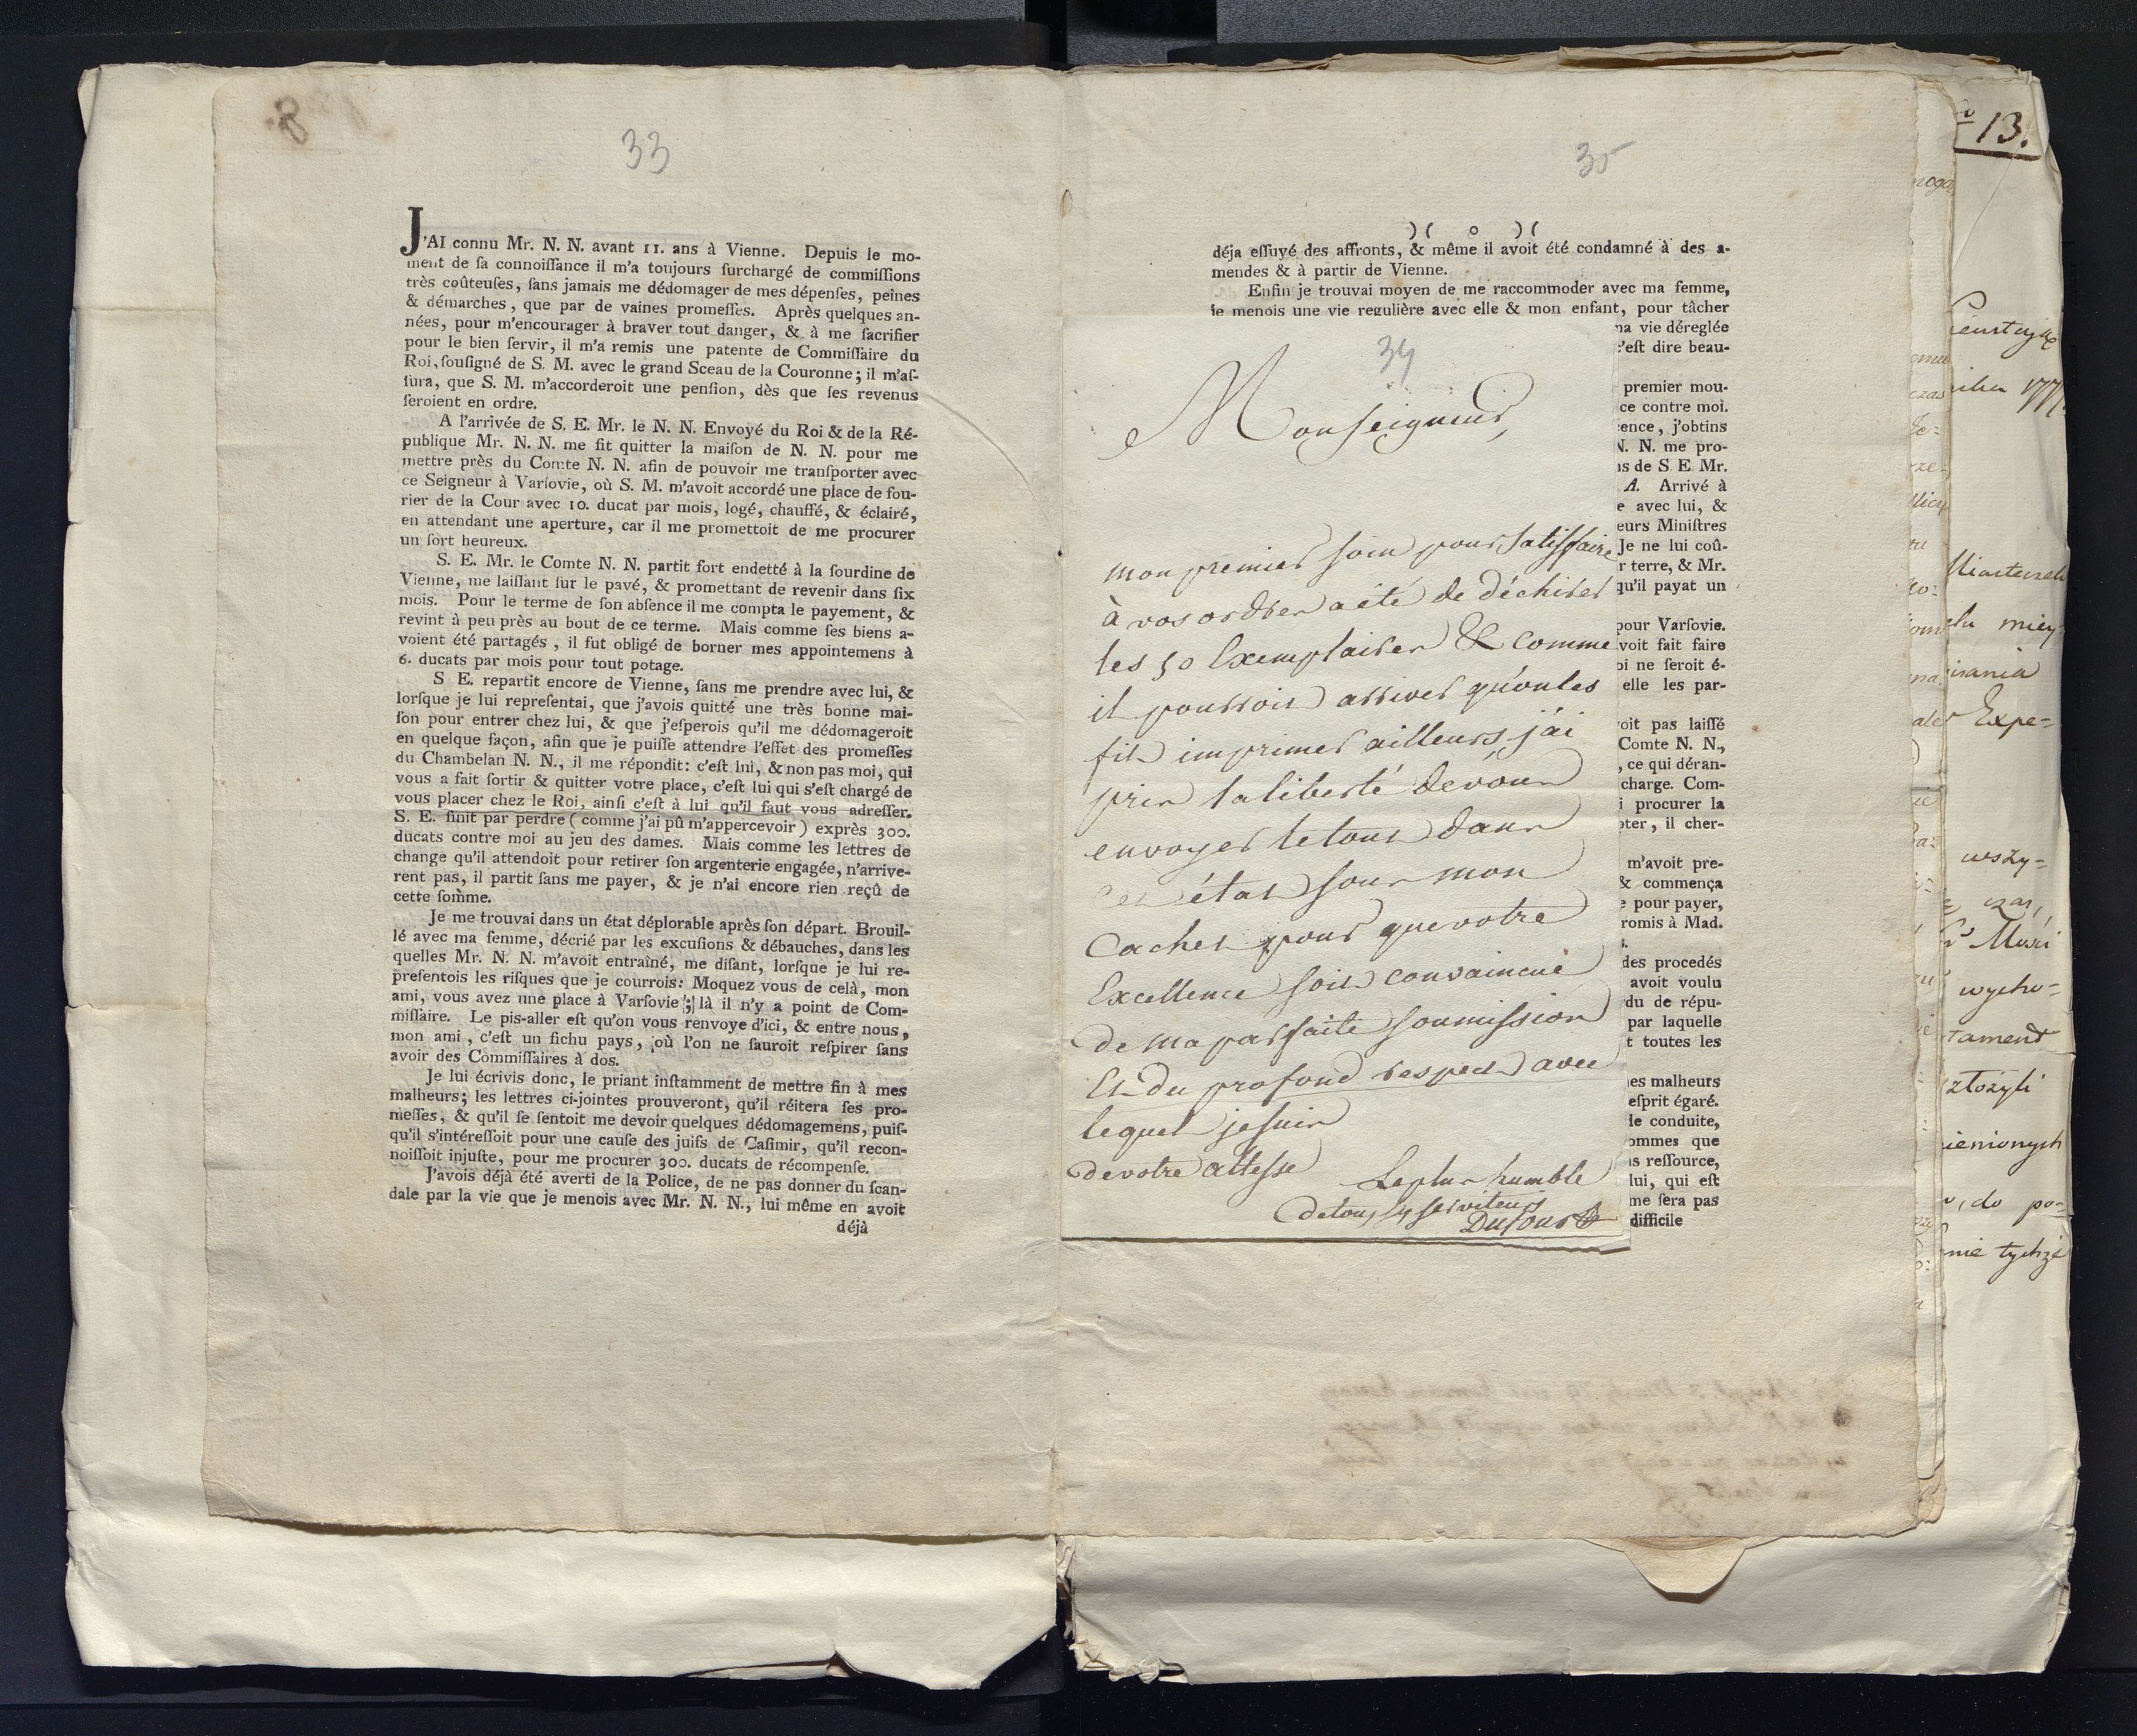 33
J'AI connu Mr. N. N. avant 11. ans à Vienne. Depuis le mo-
ment de ſa connoiſſance il m'a toujours ſurchargé de commiſſions
très coûteuſes, ſans jamais me dédomager de mes dépenſes, peines
& démarches, que par de vaines promeſſes. Après quelques an-
nées, pour m'encourager à braver tout danger, & à me ſacrifier
pour le bien ſervir, il m'a remis une patente de Commiſſaire du
Roi, ſouſigné de S. M. avec le grand Sceau de la Couronne; il m'aſ-
ſura, que S. M. m'accorderoit une penſion, dès que ſes revenus
ſeroient en ordre.
A l'arrivée de S. E. Mr. le N. N. Envoyé du Roi & de la Ré-
publique Mr. N. N. me fit quitter la maiſon de N. N. pour me
mettre près du Comte N. N. afin de pouvoir me tranſporter avec
ce Seigneur à Varſovie, où S. M. m'avoit accordé une place de fou-
rier de la Cour avec 10. ducat par mois, logé, chauffé, & éclairé,
en attendant une aperture, car il me promettoit de me procurer
un ſort heureux.
S. E. Mr. le Comte N. N. partit fort endetté à la ſourdine de
Vienne, me laiſſant ſur le pavé, & promettant de revenir dans ſix
mois. Pour le terme de ſon abſence il me compta le payement, &
revint à peu près au bout de ce terme. Mais comme ſes biens a-
voient été partagés, il fut obligé de borner mes appointemens à
6. ducats par mois pour tout potage.
S E. repartit encore de Vienne, ſans me prendre avec lui, &
lorſque je lui repreſentai, que j'avois quitté une très bonne mai-
ſon pour entrer chez lui, & que j'eſperois qu'il me dédomageroit
en quelque façon, afin que je puiſſe attendre l'effet des promeſſes
du Chambelan N. N., il me répondit: c'eſt lui, & non pas moi, qui
vous a fait ſortir & quitter votre place, c'eſt lui qui s'eſt chargé de
vous placer chez le Roi, ainſi c'eſt à lui qu'il faut vous adreſſer.
S. E. finit par perdre (comme j'ai pû m'appercevoir) exprès 300.
ducats contre moi au jeu des dames. Mais comme les lettres de
change qu'il attendoit pour retirer ſon argenterie engagée, n'arrive-
rent pas, il partit ſans me payer, & je n'ai encore rien reçû de
cette ſomme.
Je me trouvai dans un état déplorable après ſon départ. Brouil-
lé avec ma femme, décrié par les excuſions & débauches, dans les
quelles Mr. N. N. m'avoit entraîné, me diſant, lorſque je lui re-
preſentois les riſques que je courrois: Moquez vous de celà, mon
ami, vous avez une place à Varſovie; là il n'y a point de Com-
miſſaire. Le pis-aller eſt qu'on vous renvoye d'ici, & entre nous,
mon ami, c'eſt un fichu pays, où l'on ne ſauroit reſpirer ſans
avoir des Commiſſaires à dos.
Je lui écrivis donc, le priant inſtamment de mettre fin à mes
malheurs; les lettres ci-jointes prouveront, qu'il réitera ſes pro-
meſſes, & qu'il ſe ſentoit me devoir quelques dédomagemens, puiſ-
qu'il s'intéreſſoit pour une cauſe des juifs de Caſimir, qu'il recon-
noiſſoit injuſte, pour me procurer 300. ducats de récompenſe.
J'avois déjà été averti de la Police, de ne pas donner du ſcan-
dale par la vie que je menois avec Mr. N. N., lui même en avoit
déjà
35
)( o )(
déja eſſuyé des affronts, & même il avoit été condamné à des a-
mendes & à partir de Vienne.
Enfin je trouvai moyen de me raccommoder avec ma femme,
je menois une vie regulière avec elle & mon enfant, pour tâcher
na vie déreglée
c'eſt dire beau-
premier mou-
ce contre moi.
ence, j'obtins
N. N. me pro-
ns de S. E. Mr.
A. Arrivé à
e avec lui, &
eurs Miniſtres
Je ne lui coû-
r terre, & Mr.
qu'il payat un
pour Varſovie.
voit fait faire
oi ne ſeroit é-
elle les par-
oit pas laiſſé
Comte N. N.,
, ce qui déran-
charge. Com-
i procurer la
ter, il cher-
m'avoit pre-
& commença
e pour payer,
romis à Mad.
s.
des procedés
avoit voulu
du de répu-
par laquelle
t toutes les
es malheurs
eſprit égaré.
de conduite,
ommes que
ns reſſource,
lui, qui eſt
me ſera pas
difficile
34
Monseigneur,
mon premier soin pour satisfaire
à vos ordres a été de déchirer
les 50 Exemplaires & comme
il pourroit arriver qu'on les
fit imprimer ailleurs, j'ai
pris la liberté de vous
envoyer le tout dans
cet état sous mon
Cachet pour que votre
Excellence soit convaincue
de ma parfaite soumission
Et du profond respect avec
lequel je suis
de votre altesse
Le plus humble
de tous ses serviteurs
Dufour
13.
1777
Expe=
wszy=
wycho=
do po=
nie tychże